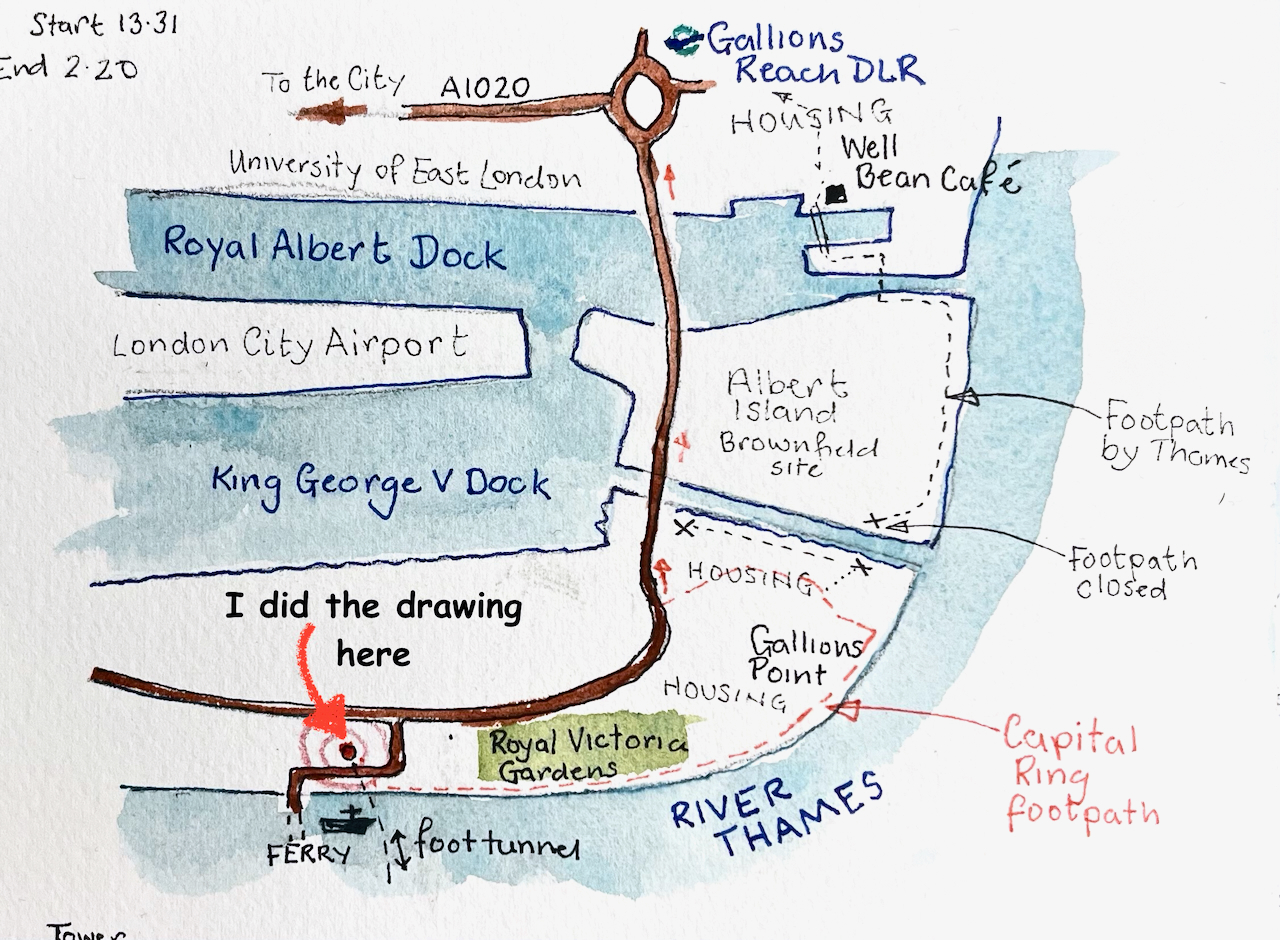 Start 13.31
End 2.20
Gallions
Reach DLR
To the City
A1020
HOUSING
Well
Bean Café
University of East London
Royal Albert Dock
London City Airport
Albert
Island
Brownfield
site
Footpath
by Thames
King George V Dock
Footpath
closed
HOUSING
I did the drawing
here
Gallions
Point
HOUSING
Capital
Ring
footpath
Royal Victoria
Gardens
RIVER
THAMES
FERRY
foot tunnel
Tower